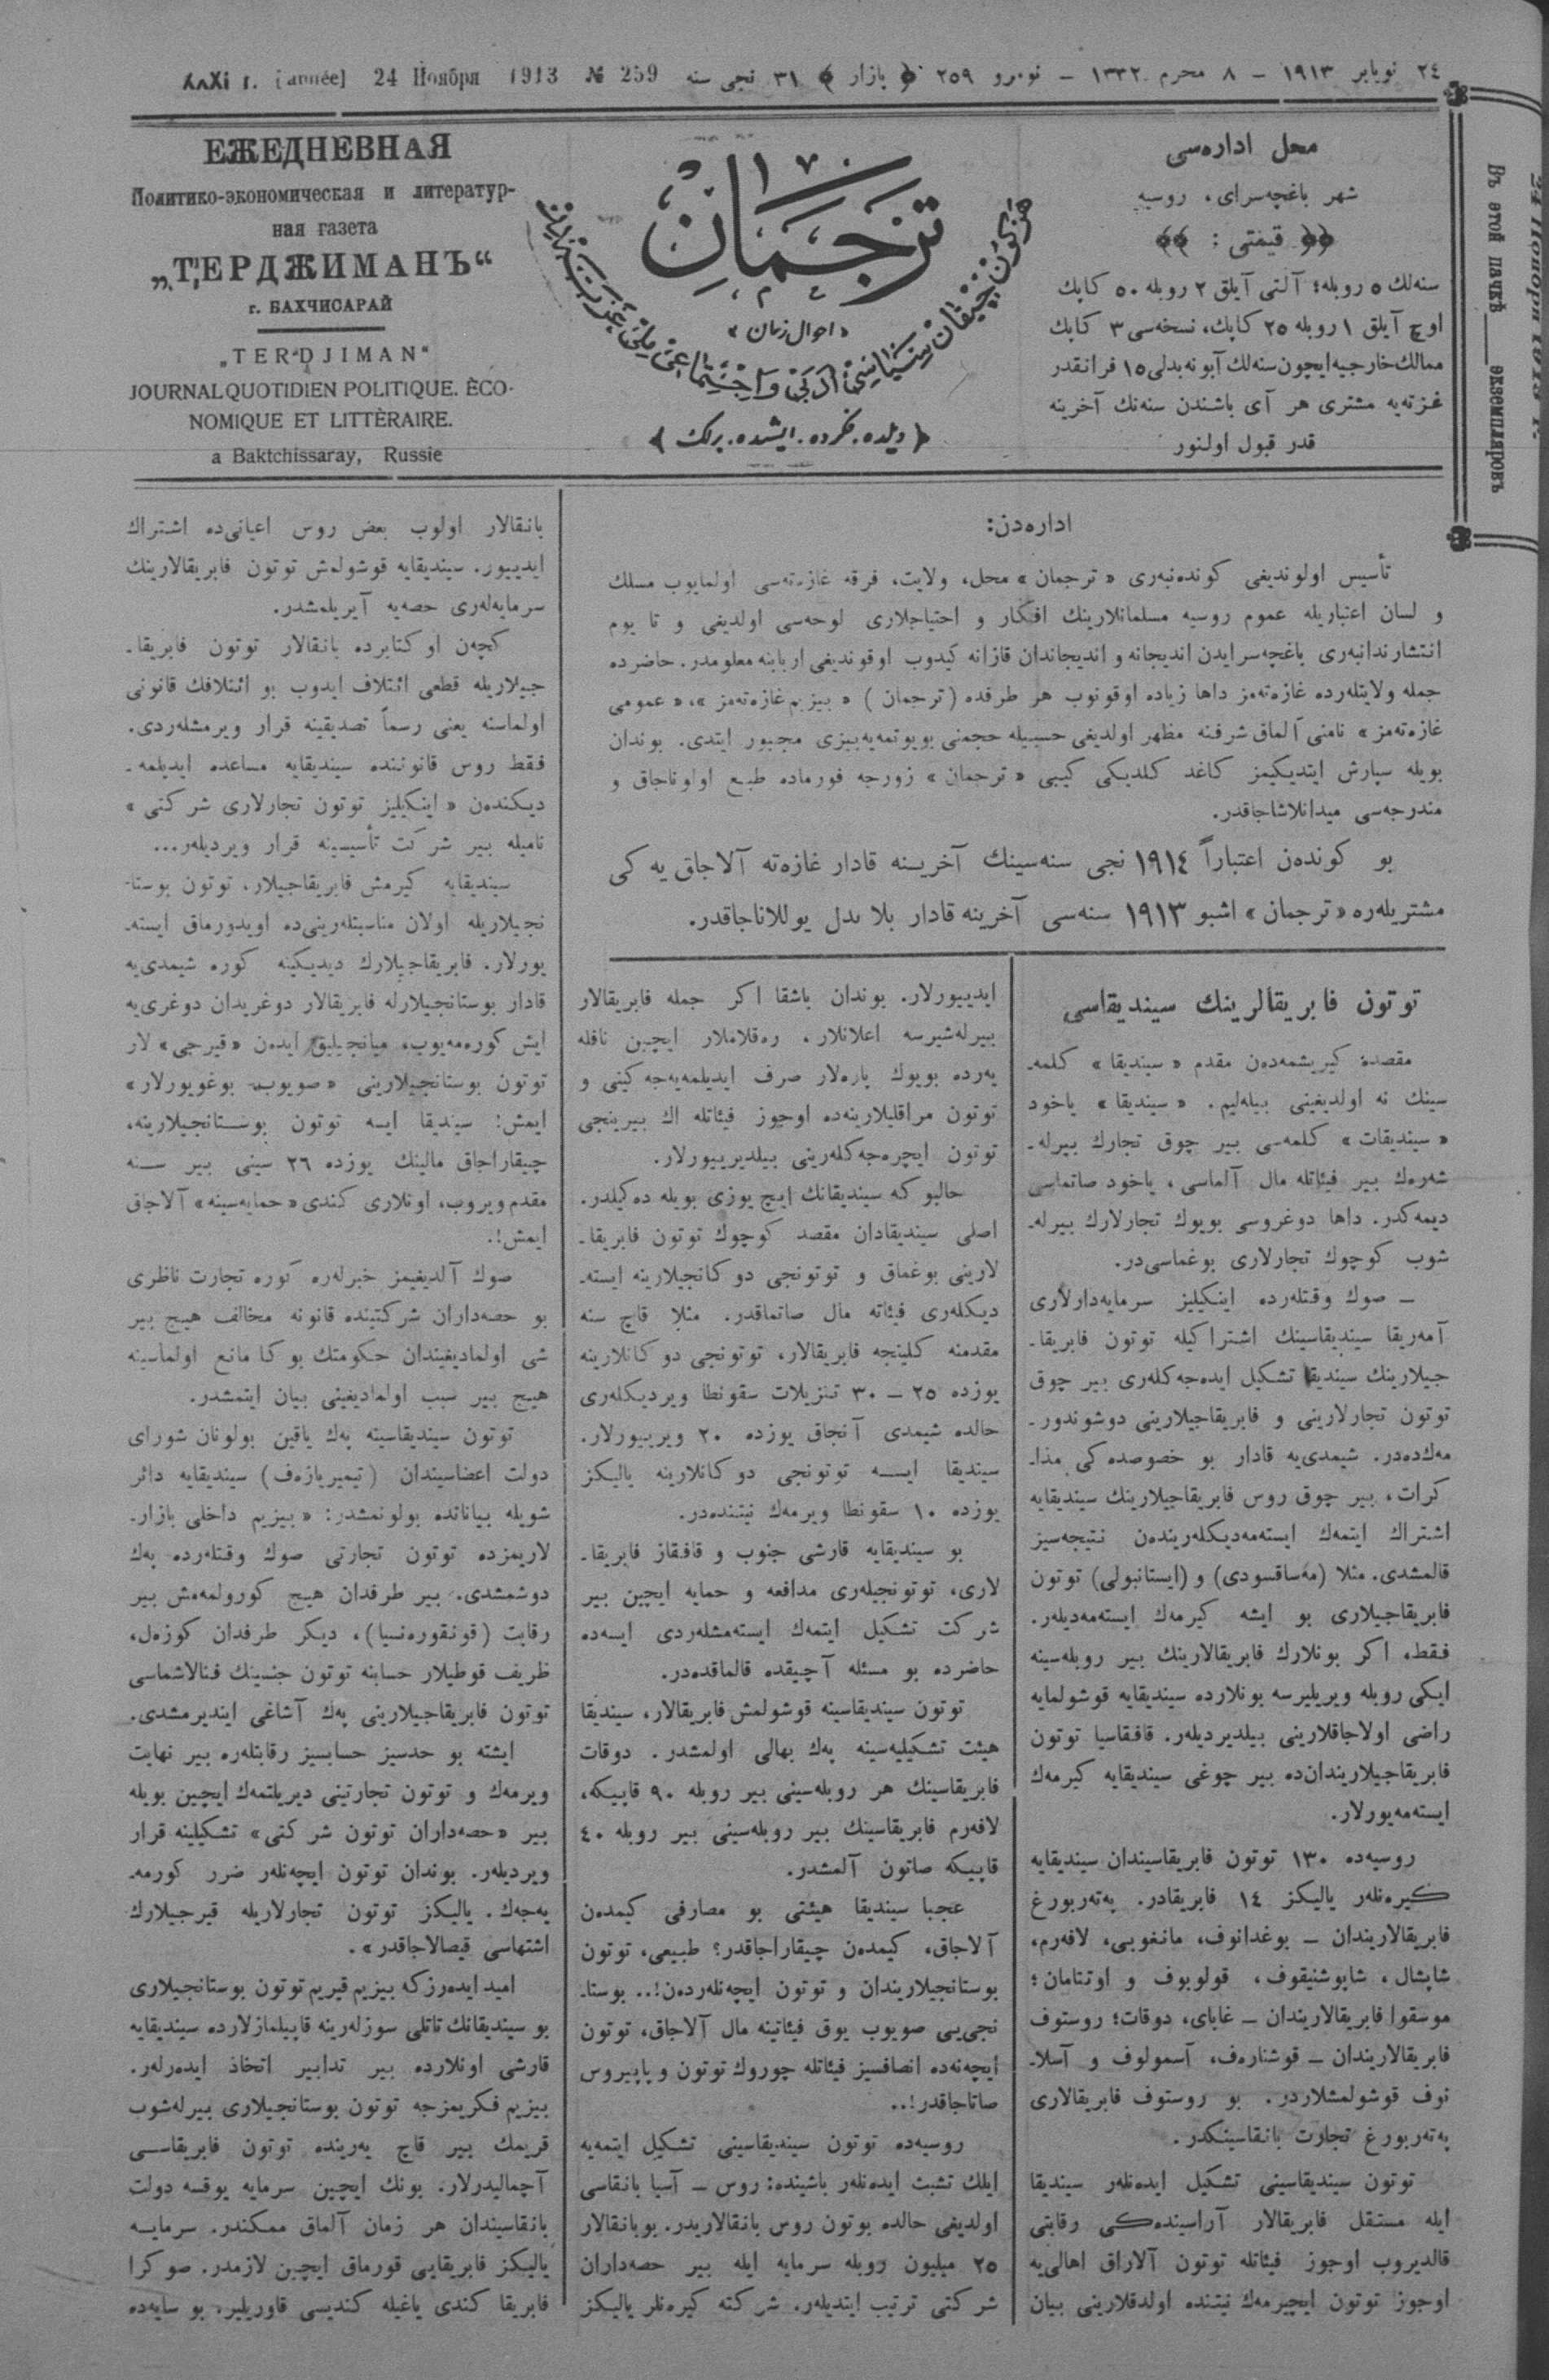 ٢٤ نویابر ١٩١٣ – ٨ محرم ١٣٣٢ – نومرو ٢٥٩ ﴿ بازار ﴾ ٣١ نجی سنه 24 Ноября 1913 № 259 [année] г. XXXI
محل اداره‌سی
شهر باغچه‌سرای، روسیه
﴿﴿ قیمتی: ﴾﴾
سنه‌لك ٥ روبله؛ آلتی آیلق ٢ روبله ٥٠ كاپك
اوچ آیلق ١ روبله ٢٥ كاپك، نسخه‌سی ٣ كاپك
ممالك خارجیه ایچون سنه‌لك آبونه بدلی ١٥ فرانقدر
غزته‌یه مشتری هر آی باشندن سنه‌نك آخرینه
قدر قبول اولنور
ترجمان
«احوال زمان»
هر كون چیقان سیاسی، ادبی و اجتماعی ملی غزته‌در
﴿ دیلده، فكرده، ایشده، برلك ﴾
ЕЖЕДНЕВНАЯ
Политико-экономическая и литератур-
ная газета
„ТЕРДЖИМАНЪ“
г. БАХЧИСАРАЙ
„TERDJIMAN“
JOURNAL QUOTIDIEN POLITIQUE. ÈCO-
NOMIQUE ET LITTÈRAIRE.
a Baktchissaray, Russie
Въ этой пачкѣ ____ экземпляровъ
اداره‌دن:
تأسیس اولوندیغی كونده‌نبه‌ری «ترجمان» محل، ولایت، فرقه غازه‌ته‌سی اولمایوب مسلك
و لسان اعتباریله عموم روسیه مسلمانلارینك افكار و احتیاجلاری لوحه‌سی اولدیغی و تا یوم
انتشارندانبه‌ری باغچه‌سرایدن اندیجانه و اندیجاندان قازانه كیدوب اوقوندیغی اربابنه معلومدر. حاضرده
جمله ولایتلرده غازه‌ته‌مز داها زیاده اوقونوب هر طرفده (ترجمان) «بیزیم غازه‌ته‌مز»، «عمومی
غازه‌ته‌مز» نامنی آلماق شرفنه مظهر اولدیغی حسبیله حجمنی بویوتمه‌یه بیزی مجبور ایتدی. بوندان
بویله سپارش ایتدیكیمز كاغد كلدیكی كیبی «ترجمان» زورجه فورماده طبع اولوناجاق و
مندرجه‌سی میدانلاشاجاقدر.
بو كونده‌ن اعتباراً ١٩١٤ نجی سنه‌سینك آخرینه قادار غازه‌ته آلاجاق یه كی
مشتریله‌ره «ترجمان» اشبو ١٩١٣ سنه‌سی آخرینه قادار بلا بدل یوللاناجاقدر.
توتون فابریقالرینك سیندیقاسی
مقصده كیریشمه‌دن مقدم «سیندیقا» كلمه‌ـ
سینك نه اولدیغینی بیله‌لیم. «سیندیقا» یاخود
«سیندیقات» كلمه‌سی بیر چوق تجارك بیرله‌ـ
شه‌رك بیر فیئاتله مال آلماسی، یاخود صاتماسی
دیمه‌كدر. داها دوغروسی بویوك تجارلارك بیرله‌ـ
شوب كوچوك تجارلاری بوغماسی‌در.
ـ صوك وقتله‌رده اینكیلیز سرمایه‌دارلاری
آمه‌ریقا سیندیقاسینك اشتراكیله توتون فابریقا‌ـ
جیلارینك سیندیقا تشكیل ایده‌جه‌كله‌ری بیر چوق
توتون تجارلارینی و فابریقاجیلارینی دوشوندور‌ـ
مه‌كده‌در. شیمدی‌یه قادار بو خصوصده‌كی مذا‌ـ
كرات، بیر چوق روس فابریقاجیلارینك سیندیقایه
اشتراك ایتمه‌ك ایسته‌مه‌دیكله‌ریندن نتیجه‌سیز
قالمشدی. مثلا (مه‌ساقسودی) و (ایستانبولی) توتون
فابریقاجیلاری بو ایشه كیرمه‌ك ایسته‌مه‌دیله‌ر.
فقط، اكر بونلارك فابریقالارینك بیر روبله‌سینه
ایكی روبله ویریلیرسه بونلارده سیندیقایه قوشولمایه
راضی اولاجاقلارینی بیلدیردیله‌ر. قافقاسیا توتون
فابریقاجیلاریندان‌ده بیر چوغی سیندیقایه كیرمه‌ك
ایسته‌مه‌یورلار.
روسیه‌ده ١٣٠ توتون فابریقاسیندان سیندیقایه
كیره‌نله‌ر یالیكز ١٤ فابریقادر. په‌ته‌ربورغ
فابریقالاریندان ـ بوغدانوف، مانغوبی، لافه‌رم،
شاپشال، شاپوشنیقوف، قولوبوف و اوتتامان؛
موسقوا فابریقالاریندان ـ غابای، دوقات؛ روستوف
فابریقالاریندان ـ قوشناره‌ف، آسمولوف و آسلا‌ـ
نوف قوشولمشلاردر. بو روستوف فابریقالاری
په‌ته‌ربورغ تجارت بانقاسینكدر.
توتون سیندیقاسینی تشكیل ایده‌نله‌ر سیندیقا
ایله مستقل فابریقالار آراسینده‌كی رقابتی
قالدیروب اوجوز فیئاتله توتون آلاراق اهالی‌یه
اوجوز توتون ایچیرمه‌ك نیتنده اولدقلارینی بیان
ایدییورلار. بوندان باشقا اكر جمله فابریقالار
بیرله‌شیرسه اعلانلار، ره‌قلاملار ایچین نافله
یه‌رده بویوك پاره‌لار صرف ایدیلمه‌یه‌جه‌كینی و
توتون مراقلیلارینه‌ده اوجوز فیئاتله اك بیرینجی
توتون ایچره‌جه‌كله‌رینی بیلدیرییورلار.
حالبو كه سیندیقانك ایچ یوزی بویله ده‌كیلدر.
اصلی سیندیقادان مقصد كوچوك توتون فابریقا‌ـ
لارینی بوغماق و توتونجی دوكانجیلارینه ایسته‌ـ
دیكله‌ری فیئاته مال صاتماقدر. مثلا قاچ سنه
مقدمنه كلینجه فابریقالار، توتونجی دوكانلارینه
یوزده ٢٥ – ٣٠ تنزیلات سقونطا ویردیكله‌ری
حالده شیمدی آنجاق یوزده ٢٠ ویرییورلار.
سیندیقا ایسه توتونجی دوكانلارینه یالیكز
یوزده ١٠ سقونطا ویرمه‌ك نیتنده‌در.
بو سیندیقایه قارشی جنوب و قافقاز فابریقا‌ـ
لاری، توتونجیله‌ری مدافعه و حمایه ایچین بیر
شركت تشكیل ایتمه‌ك ایسته‌مشله‌ردی ایسه‌ده
حاضرده بو مسئله آچیقده قالماقده‌در.
توتون سیندیقاسینه قوشولمش فابریقالار، سیندیقا
هیئت تشكیلیه‌سینه په‌ك بهالی اولمشدر. دوقات
فابریقاسینك هر روبله‌سینی بیر روبله ٩٠ قاپیكه،
لافه‌رم فابریقاسینك بیر روبله‌سینی بیر روبله ٤٠
قاپیكه صاتون آلمشدر.
عجبا سیندیقا هیئتی بو مصارفی كیمدن
آلاجاق، كیمدن چیقاراجاقدر؟ طبیعی، توتون
بوستانجیلاریندان و توتون ایچه‌نله‌رده‌ن!.. بوستا‌ـ
نجی‌یی صویوب یوق فیئاتینه مال آلاجاق، توتون
ایچه‌نه‌ده انصافسیز فیئاتله چوروك توتون و پاپیروس
صاتاجاقدر!..
روسیه‌ده توتون سیندیقاسینی تشكیل ایتمه‌یه
ایلك تشبث ایده‌نله‌ر باشینده: روس ـ آسیا بانقاسی
اولدیغی حالده بوتون روس بانقالاریدر. بو بانقالار
٢٥ میلیون روبله سرمایه ایله بیر حصه‌داران
شركتی ترتیب ایتدیله‌ر. شركته كیره‌نلر یالیكز
بانقالار اولوب بعض روس اعیانی‌ده اشتراك
ایدییور. سیندیقایه قوشولمش توتون فابریقالارینك
سرمایه‌له‌ری حصه‌یه آیریلمشدر.
كچه‌ن اوكتابرده بانقالار توتون فابریقا‌ـ
جیلاریله قطعی ائتلاف ایدوب بو ائتلافك قانونی
اولماسنه یعنی رسماً تصدیقینه قرار ویرمشله‌ردی.
فقط روس قانوننده سیندیقایه مساعده ایدیلمه‌ـ
دیكنده‌ن «اینكیلیز توتون تجارلاری شركتی»
نامیله بیر شركت تأسیسینه قرار ویردیله‌ر...
سیندیقایه كیرمش فابریقاجیلار، توتون بوستا‌ـ
نجیلاریله اولان مناسبتله‌رینی‌ده اویدورماق ایسته‌ـ
یورلار. فابریقاجیلارك دیدیكینه كوره شیمدی‌یه
قادار بوستانجیلارله فابریقالار دوغریدان دوغری‌یه
ایش كوره‌مه‌یوب، میانجیلیق ایده‌ن «قیرجی» لار
توتون بوستانجیلارینی «صویوب بوغویورلار»
ایمش: سیندیقا ایسه توتون بوستانجیلارینه،
چیقاراجاق مالینك یوزده ٢٦ سینی بیر سنه
مقدم ویروب، اونلاری كندی «حمایه‌سینه» آلاجاق
ایمش!.
صوك آلدیغیمز خبرله‌ره كوره تجارت ناظری
بو حصه‌داران شركتینده قانونه مخالف هیچ بیر
شی اولمادیغیندان حكومتك بوكا مانع اولماسینه
هیچ بیر سبب اولمادیغینی بیان ایتمشدر.
توتون سیندیقاسینه په‌ك یاقین بولونان شورای
دولت اعضاسیندان (تیمیریازه‌ف) سیندیقایه دائر
شویله بیاناتده بولونمشدر: «بیزیم داخلی بازار‌ـ
لاریمزده توتون تجارتی صوك وقتله‌رده په‌ك
دوشمشدی. بیر طرفدان هیچ كورولمه‌مش بیر
رقابت (قونقوره‌نسیا)، دیكر طرفدان كوزه‌ل،
ظریف قوطیلار حسابنه توتون جنسینك فنالاشماسی
توتون فابریقاجیلارینی په‌ك آشاغی ایندیرمشدی.
ایشته بو حدسیز حسابسیز رقابتله‌ره بیر نهایت
ویرمه‌ك و توتون تجارتینی دیریلتمه‌ك ایچین بویله
بیر «حصه‌داران توتون شركتی» تشكیلینه قرار
ویردیله‌ر. بوندان توتون ایچه‌نله‌ر ضرر كورمه‌ـ
یه‌جه‌ك. یالیكز توتون تجارلاریله قیرجیلارك
اشتهاسی قیصالاجاقدر».
امید ایده‌رزكه بیزیم قیریم توتون بوستانجیلاری
بو سیندیقانك تاتلی سوزله‌رینه قاپیلمازلارده سیندیقایه
قارشی اونلارده بیر تدابیر اتخاذ ایده‌رله‌ر.
بیزیم فكریمزجه توتون بوستانجیلاری بیرله‌شوب
قریمك بیر قاچ یه‌رینده توتون فابریقاسی
آچمالیدرلار. بونك ایچین سرمایه یوقسه دولت
بانقاسیندان هر زمان آلماق ممكندر. سرمایه
یالیكز فابریقایی قورماق ایچین لازمدر. صوكرا
فابریقا كندی یاغیله كندیسی قاوریلیر. بو سایه‌ده